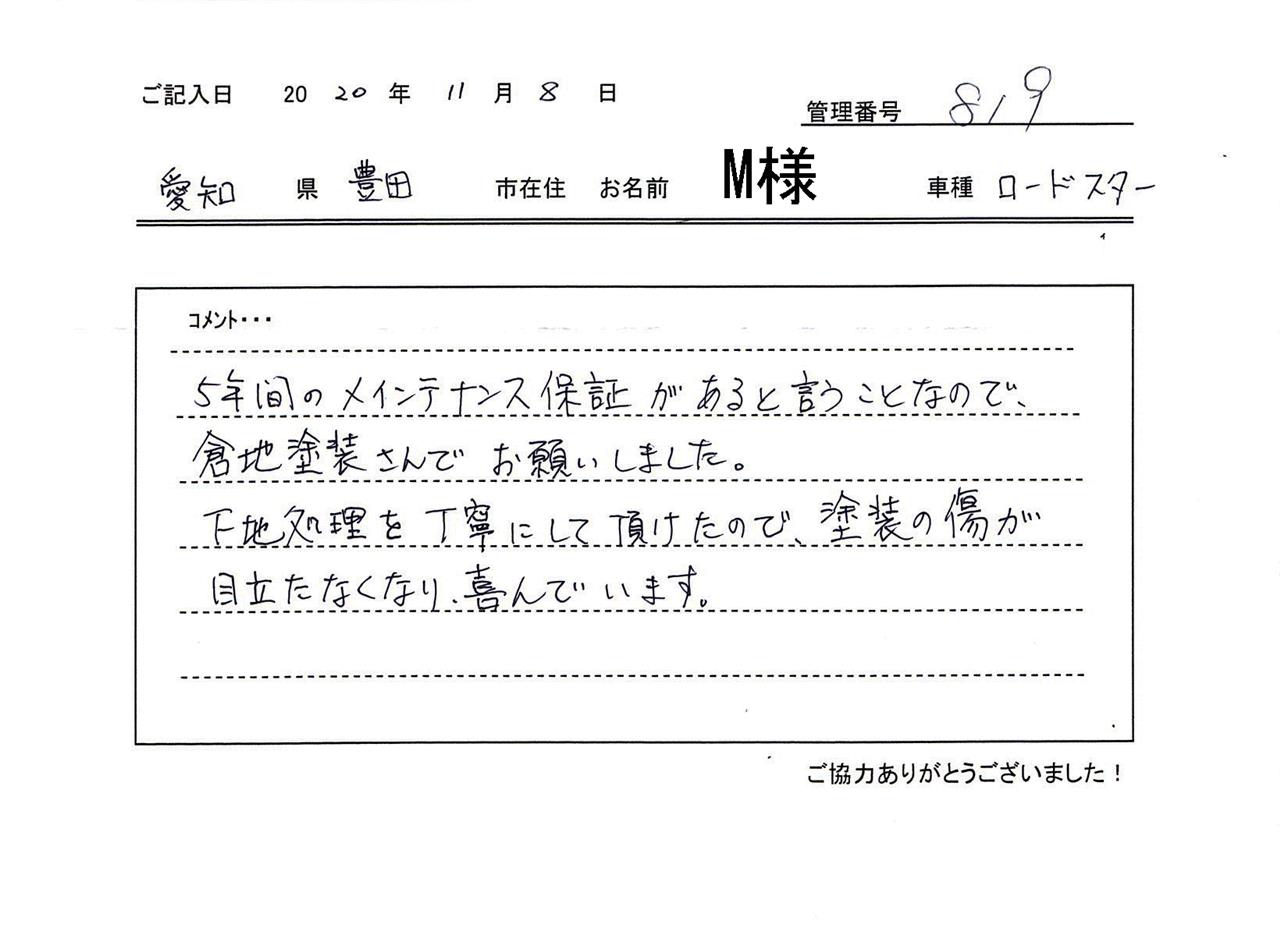 ご記入日 2020年 11月 8日
管理番号 819
愛知県 豊田市在住 お名前 M様 車種 ロードスター
コメント・・・
5年間のメインテナンス保証があると言うことなので、
倉地塗装さんでお願いしました。
下地処理を丁寧にして頂けたので、塗装の傷が
目立たなくなり、喜んでいます。
ご協力ありがとうございました!